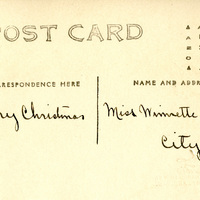 POST CARD
RRESPONDENCE HERE
NAME AND ADDR
ry Christmas
Miss Winnette
City